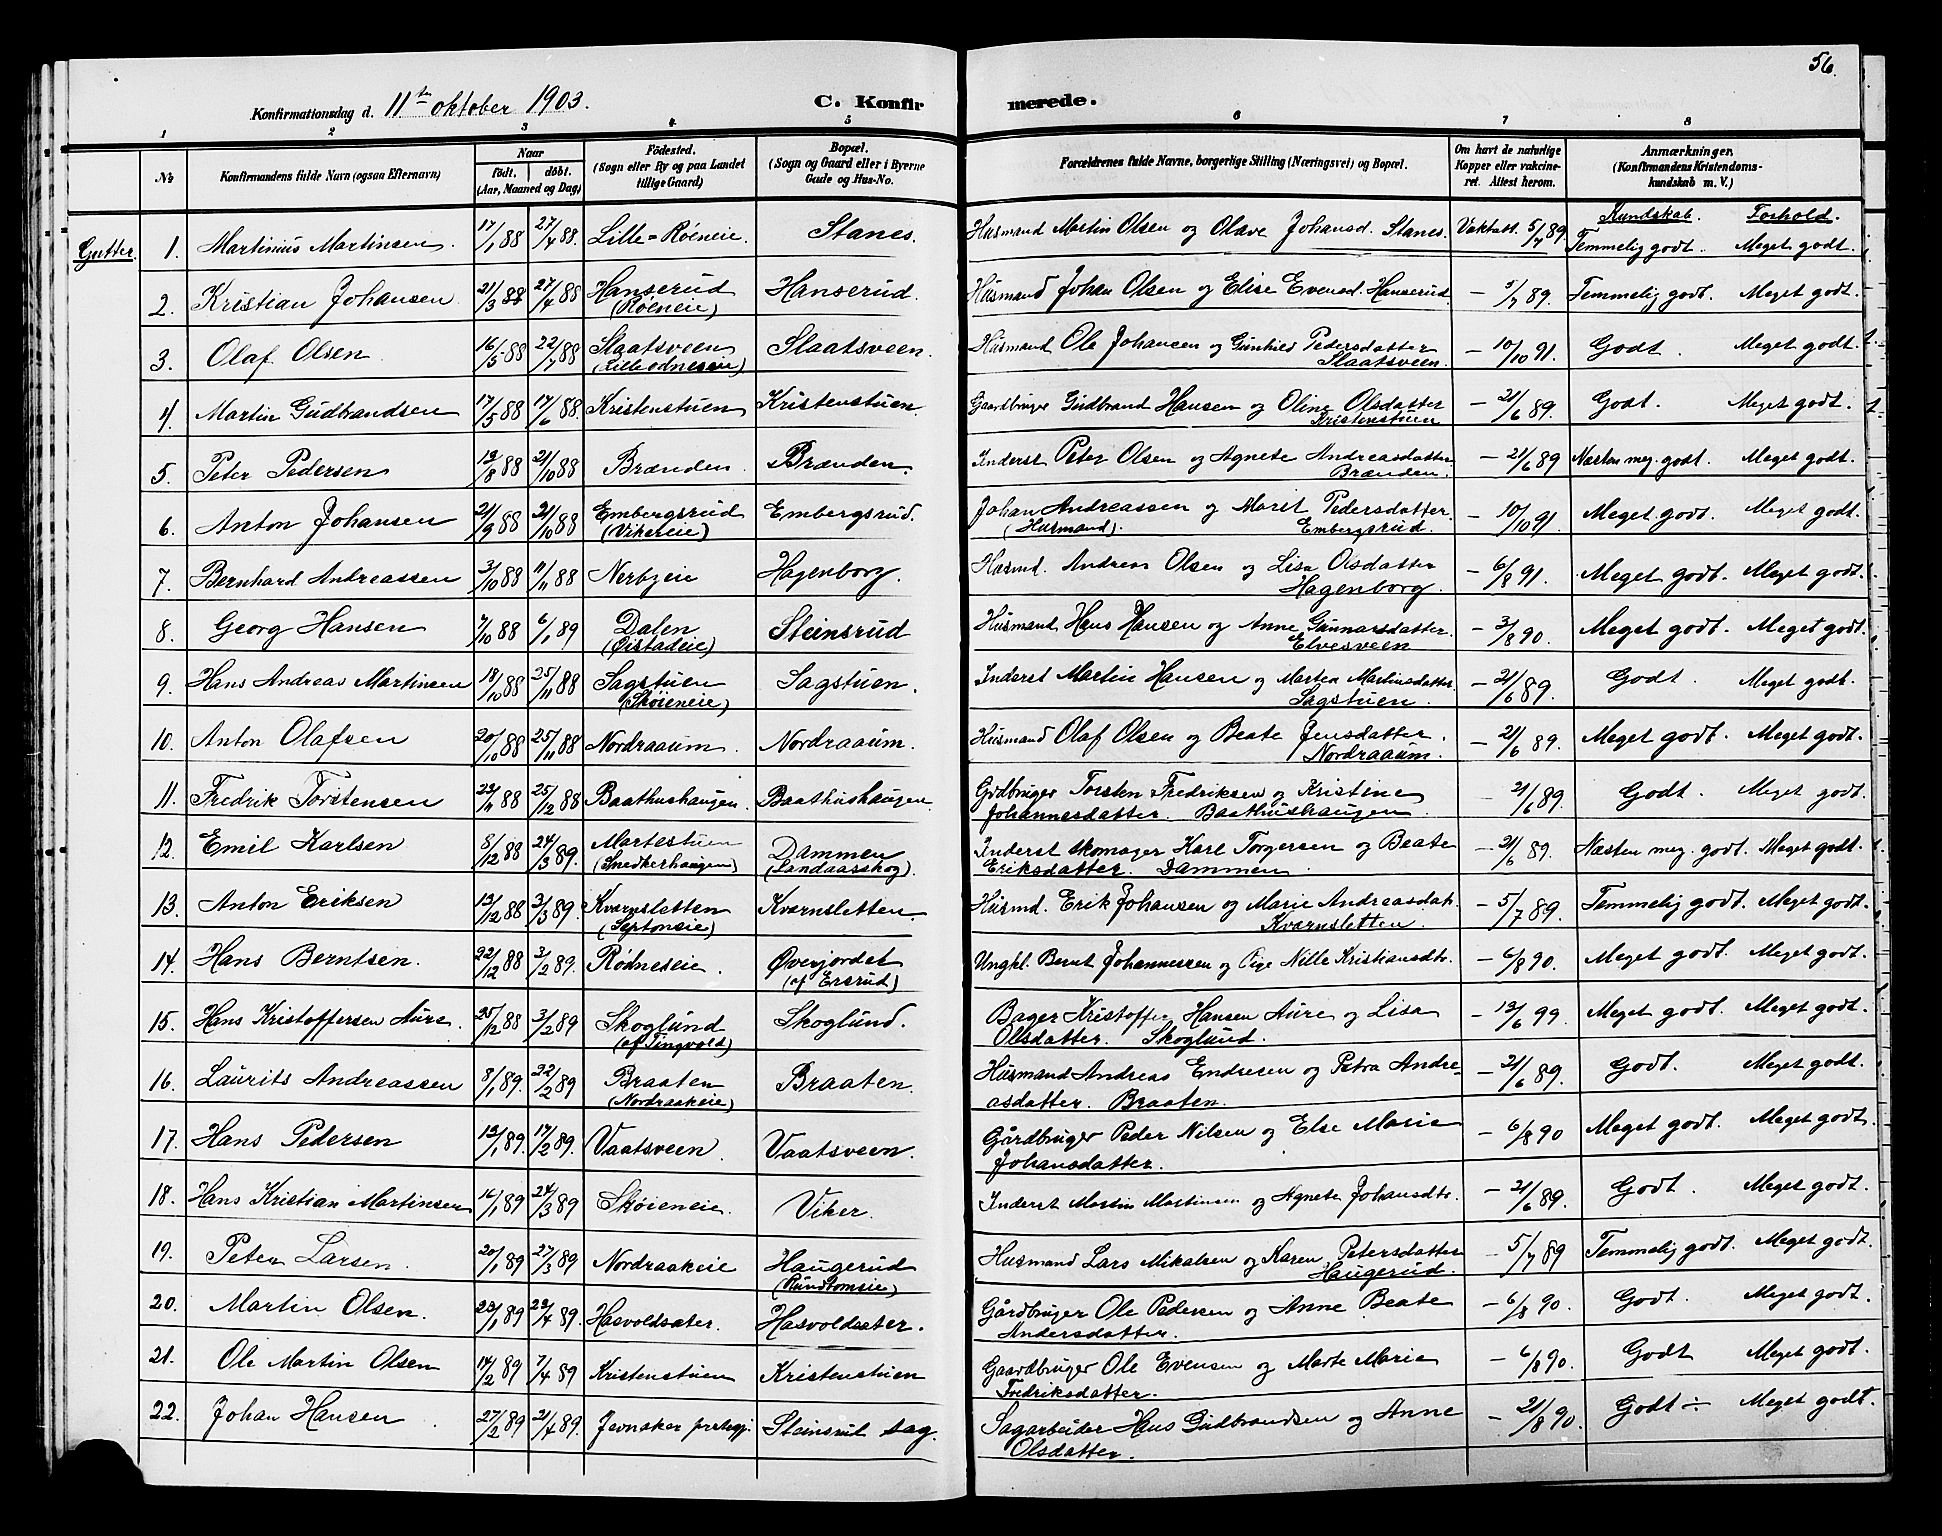 56.
Konfirmationsdag d. 11te oktober 1903. C. Konfirmerede.
1 2 3 4 5 6 7 8
No Konfirmandens fulde Navn (ogsaa Efternavn) Naar födt. döbt. (Aar, Maaned og Dag) Födested. (Sogn eller By og paa Landet tillige Gaard) Bopæl. (Sogn og Gaard eller i Byerne Gade og Hus-No. Forældrenes fulde Navne, borgerlige Stilling (Næringsvei) og Bopæl. Om havt de naturlige Kopper eller vakcineret. Attest herom. Anmærkninger. (Konfirmandens Kristendomskundskab m. V.)
Kundskab. Forhold.
Gutter. 1. Martinius Martinsen. 17/1 88 27/4 88. Lille-Röeneie. Stanes. Husmand Martin Olsen og Olave Johansd. Stanes. Vaksatt. 5/7 89. Temmelig godt. Meget godt.
2. Kristian Johansen 21/3 88 27/4 88 Hanserud (Röeneie) Hanserud. Husmand Johan Olsen og Elise Evensd. Hanserud. — 5/7 89. Temmelig godt. Meget godt.
3. Olaf Olsen 16/5 88 22/7 88 Slaatsveen (Lilleodneseie) Slaatsveen. Husmand Ole Johansen og Gunhild Pedersdatter Slaatsveen. — 10/10 91. Godt. Meget godt.
4. Martin Gudbrandsen 17/5 88 17/6 88. Kristenstuen Kristenstuen. Gaardbruger Gudbrand Hansen og Oline Olsdatter Kristenstuen — 21/6 89. Godt. Meget godt.
5. Peter Pedersen 13/8 88 21/10 88 Brænden. Brænden. Inderst Peter Olsen og Agnete Andreasdatter Brænden. — 21/6 89 Næsten meg. godt. Meget godt.
6. Anton Johansen 21/9 88 21/10 88 Embergsrud (Vikereie) Embergsrud. Johan Andreassen og Marit Pedersdatter. (Husmand). Embergsrud. — 10/10 91. Meget godt. Meget godt.
7. Bernhard Andreassen 3/10 88 11/11 88 Nerbyeie Hagenborg. Husmd. Andreas Olsen og Lisa Olsdatter Hagenborg. — 6/8 91. Meget godt. Meget godt.
8. Georg Hansen 7/10 88 6/1 89 Dalen (Øistadeie) Steinsrud Husmand Hans Hansen og Anne Gunnarsdatter. Elvesveen — 3/8 90. Meget godt. Meget godt.
9. Hans Andreas Martinsen 18/10 88 25/11 88 Sagstuen (Sköieneie) Sagstuen. Inderst Martin Hansen og Marten Martinsdatter Sagstuen. — 21/6 89. Godt. Meget godt.
10. Anton Olafsen 20/10 88 25/11 88 Nordraaum. Nordraaum. Husmand Olaf Olsen og Beate Jensdatter. Nordraaum. — 21/6 89. Meget godt. Meget godt.
11. Fredrik Torstensen 23/11 88 25/12 88 Baathushaugen. Baathushaugen. Gårdbruger Torsten Fredriksen og Kristine Johannesdatter. Baathushaugen. — 21/6 89. Godt. Meget godt.
12. Emil Karlsen 8/12 88 24/3 89. Martestuen (Snedkerhaugen) Dammen (Landaasskog). Inderst skomager Karl Torgersen og Beate Eriksdatter. Dammen — 21/6 89. Næsten meg. godt. Meget godt.
13. Anton Eriksen 13/12 88 31/3 89. Kværnsletten (Septoneie) Kværnsletten Husmd. Erik Johansen og Marie Andreasdat. Kværnsletten. — 5/7 89. Temmelig godt. Meget godt.
14. Hans Berntsen. 22/12 88 3/2 89. Rödneseie. Øverjordet (af Ersrud) Ungkl. Bernt Johannessen og Pige Nille Kristiansdtr. — 6/8 90. Meget godt. Meget godt.
15. Hans Kristoffersen Aure. 25/12 88 3/2 89 Skoglund (af Tingvold) Skoglund. Bager Kristoffer Hansen Aure og Lisa Olsdatter. Skoglund. — 13/6 99. Meget godt. Meget godt.
16. Laurits Andreassen 8/1 89. 22/2 89 Braaten (Nordraakeie) Braaten. Husmand Andreas Endresen og Petra Andreasdatter. Braaten. — 21/6 89. Godt. Meget godt.
17. Hans Pedersen 13/1 89. 17/2 89. Vaatsveen Vaatsveen. Gårdbruger Peder Nilsen og Else Marie Johansdatter. — 6/8 90 Meget godt. Meget godt.
18. Hans Kristian Martinsen 16/1 89 24/3 89 Sköieneie. Viker. Inderst Martin Martinsen og Agnete Johansdtr. — 21/6 89. Godt. Meget godt.
19. Peter Larsen. 20/1 89 27/3 89 Nordraakeie Haugerud (Rundtomeie) Husmand Lars Mikalsen og Karen Petersdatter Haugerud. — 5/7 89 Temmelig godt. Meget godt.
20. Martin Olsen. 23/1 89 23/4 89. Hasvoldsæter. Hasvoldsæter. Gårdbruger Ole Pedersen og Anne Beate Andersdatter. — 6/8 90. Godt. Meget godt.
21. Ole Martin Olsen 14/2 89 7/4 89 Kristenstuen Kristenstuen Gaardbruger Ole Evensen og Marte Marie Fredriksdatter. — 6/8 90. Godt Meget godt.
22. Johan Hansen 27/2 89 21/4 89. Jevnaker prestegj. Steinsrud sag. Sagarbeider Hans Gudbrandsen og Anne Olsdatter. — 21/8 90. Godt ÷ Meget godt.